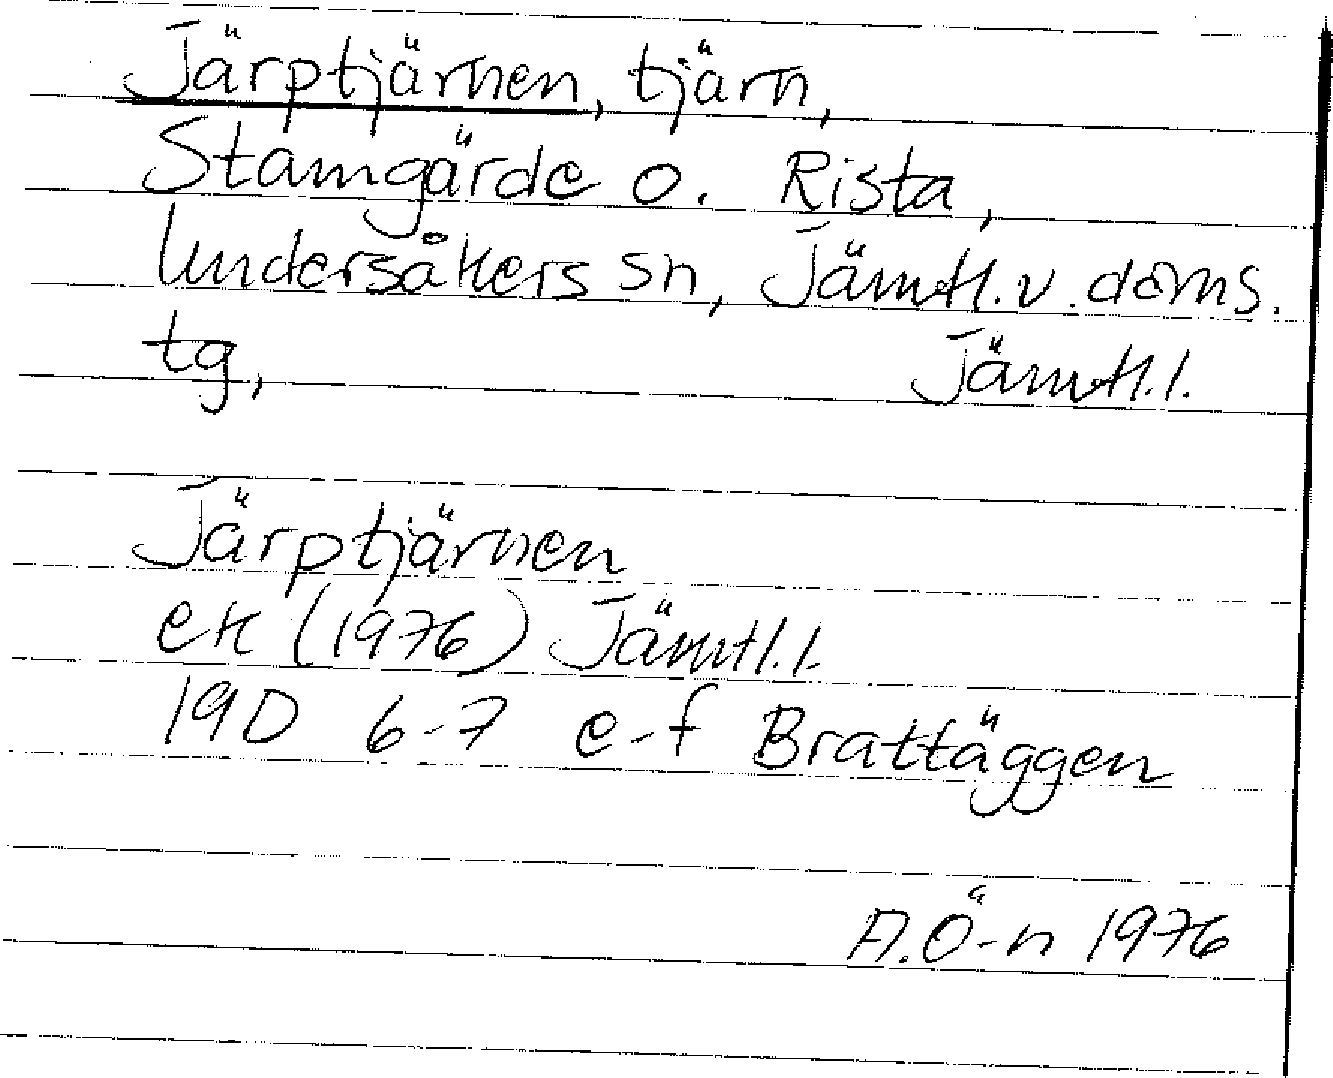 Järptjärnen, tjärn,
Stamgärde o. Rista,
Undersåkers sn, Jämtl. v. doms.
tg, Jämtl. l.
Järptjärnen
ek (1976) Jämtl. l.
19D 6-7 e-f Brattäggen
A. Ö-n 1976